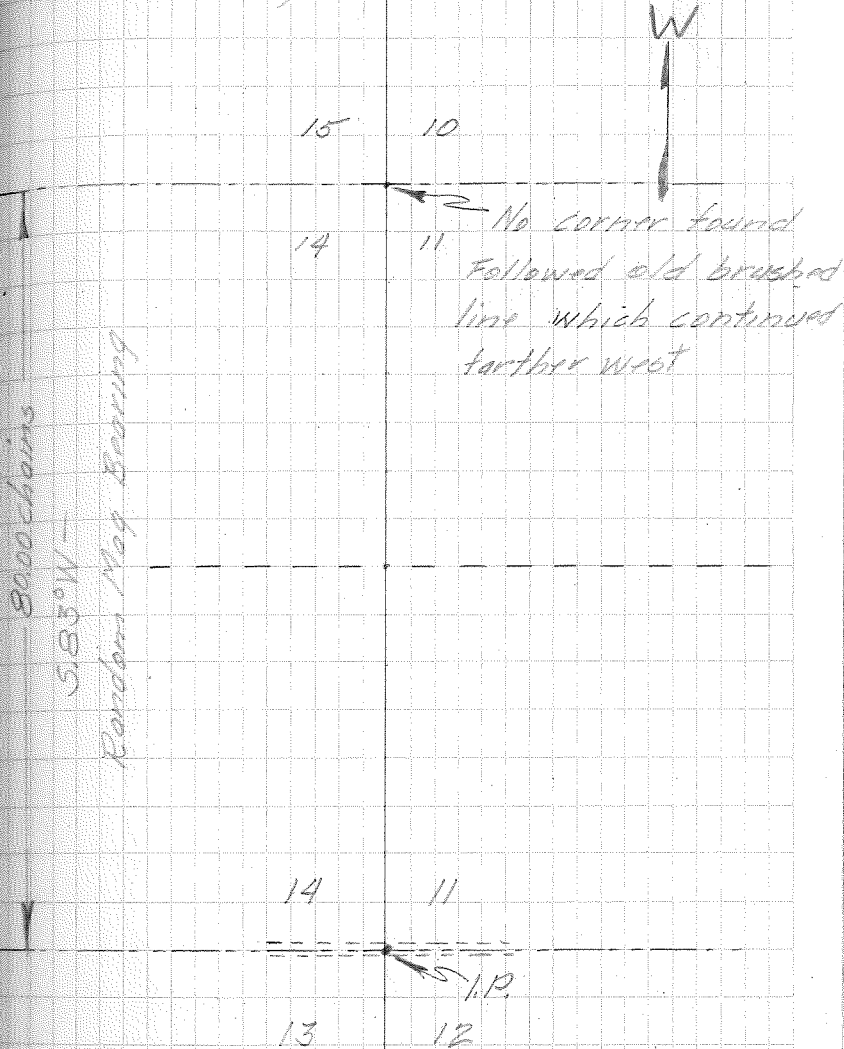 W
15 10
No corner found
14 11
Followed old brushed
line which continued
farther west
80.00 chains
S.83°W—
Random Mag Bearing
14 11
I.P.
13 12